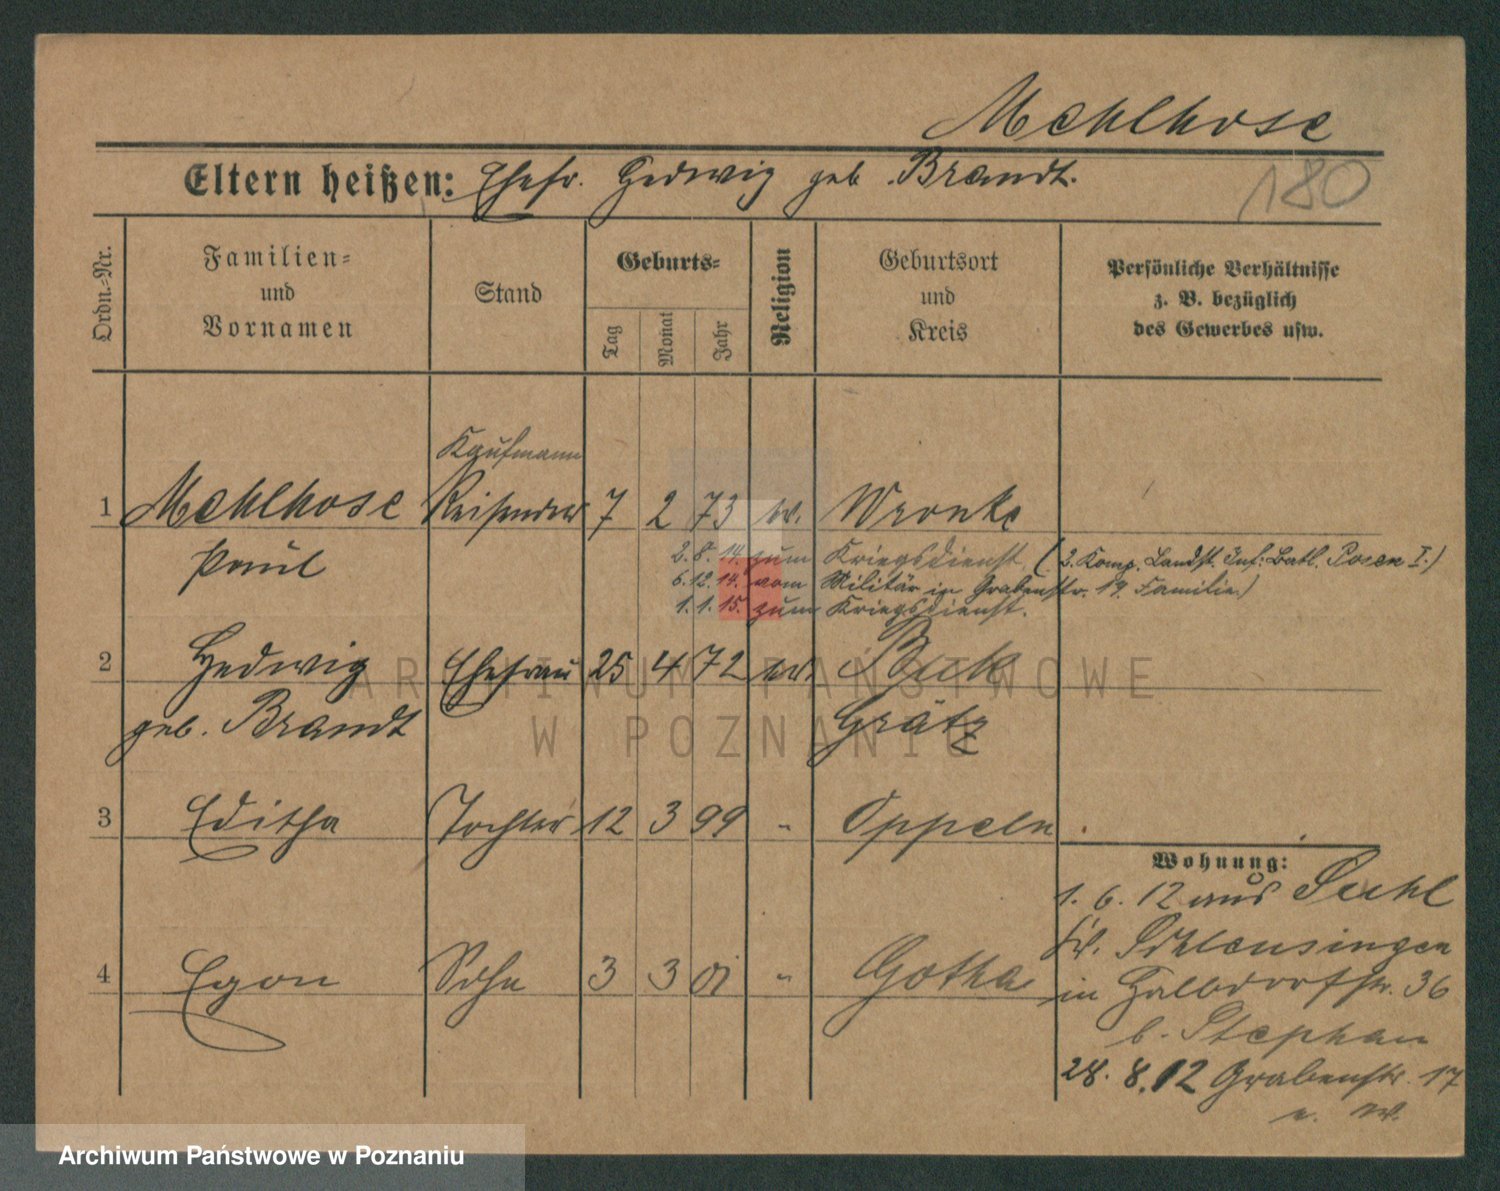 Mehlhose
Eltern heißen: Ehefr. Hedwig geb. Brandt.
180
Ordn.-Nr.
Familien-
und
Vornamen
Stand
Geburts-
Tag
Monat
Jahr
Religion
Geburtsort
und
Kreis
Persönliche Verhältnisse
z. B. bezüglich
des Gewerbes usw.
Kaufmann
1 Mehlhose Reisender 7 2 73 ev. Wronke
Paul
2. 8. 14. zum Kriegsdienst. (2. Komp. Landst. Inf. Batl. Posen I.)
6. 12. 14. vom Militär in Grabenstr. 19. Familie.)
1. 1. 15. zum Kriegsdienst.
2 Hedwig Ehefrau 25 4 72 ev. Buk
geb. Brandt Grätz
3 Editha Tochter 12 3 99 " Oppeln
Wohnung:
1. 6. 12 aus Suhl
Kr. Schleusingen
4 Egon Sohn 3 3 01 " Gotha
in Halbdorfstr. 36
b. Stephan
28. 8. 12 Grabenstr. 17
e. W.
ARCHIWUM PAŃSTWOWE
W POZNANIU
Archiwum Państwowe w Poznaniu